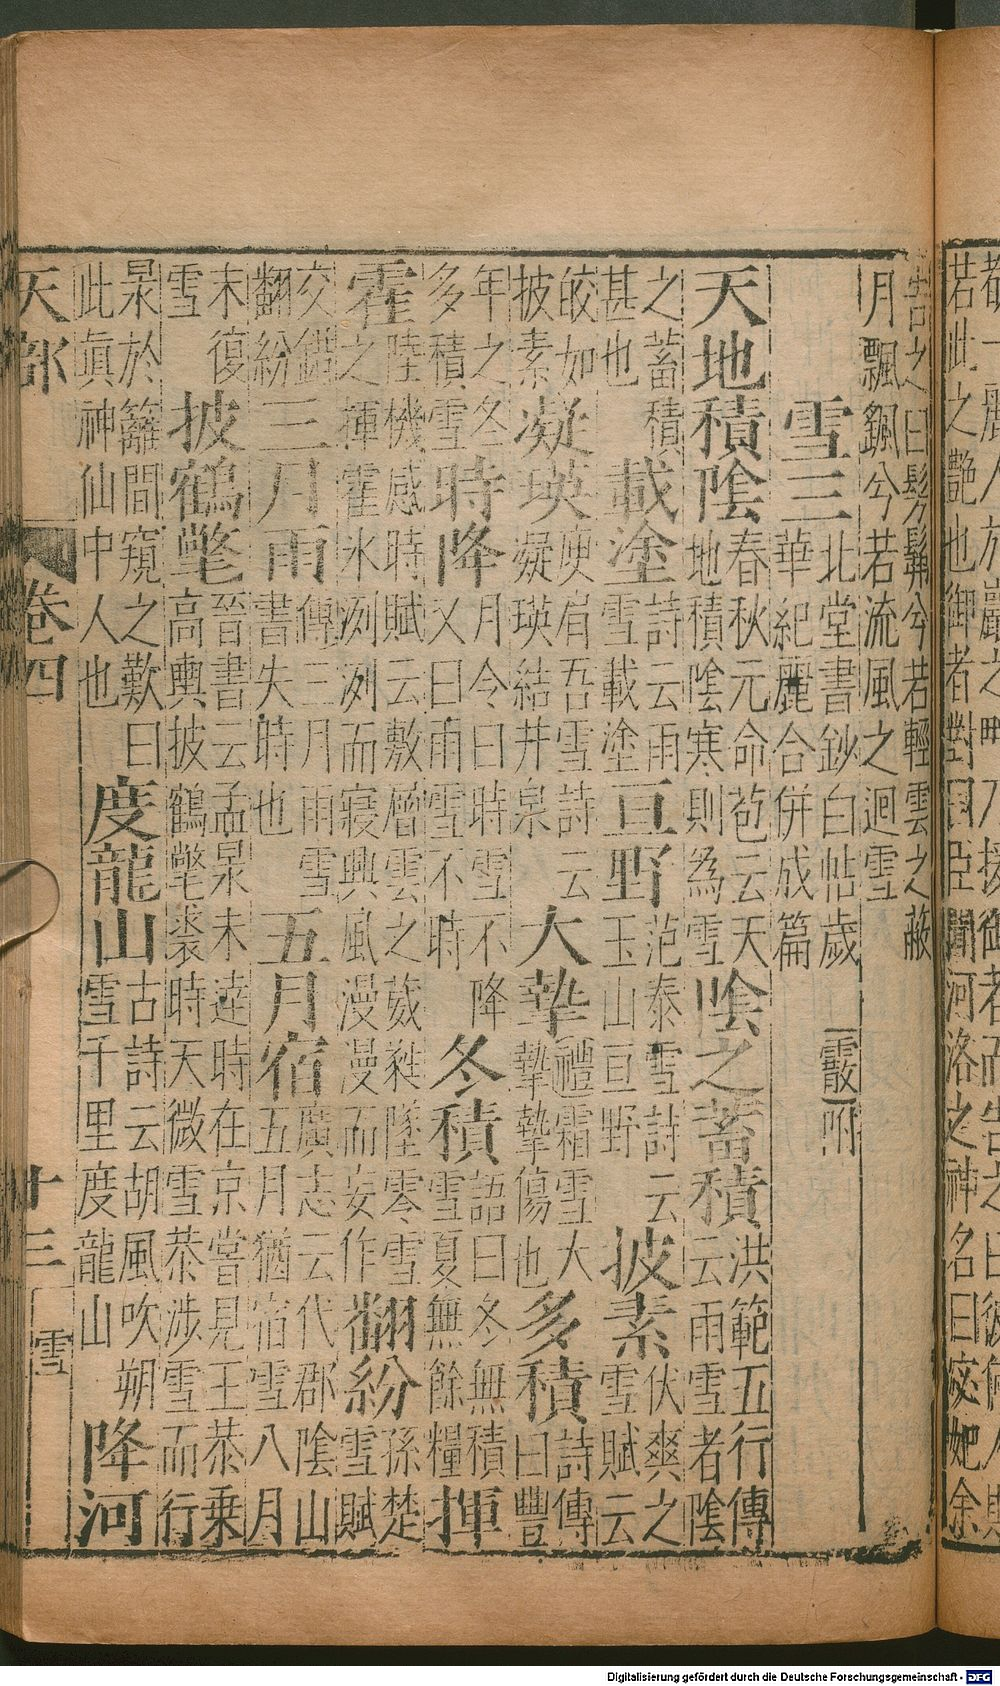 若此之艷也御者對曰臣聞河洛之神名曰宓妃余
告之曰髣髴兮若輕雲之蔽
月飄颻兮若流風之迴雪
雪三 北堂書鈔白帖歲
華紀麗合併成篇 霰附
天地積陰 春秋元命苞云天
地積陰寒則為雪 陰之蓄積 洪範五行傳
云雨雪者陰
之蓄積
甚也 載塗 詩云雨
雪載塗 亘野 范泰雪詩云
玉山亘野 披素 伏爽之
雪賦云
皎如
披素 凝瑛 庾肩吾雪詩云
凝瑛結井泉 大摯 禮霜雪大
摯摯傷也 多積 詩傳
曰豐
年之冬
多積雪 時降 月令曰時雪不降
又曰雨雪不時 冬積 語曰冬無積
雪夏無餘糧 揮
霍 陸機感時賦云敷層雲之葳蕤墜零雪
之揮霍冰冽冽而寢興風漫漫而妄作 翻紛 孫楚
雪賦
交錯
翻紛 三月雨 傳三月雨雪
書失時也 五月宿 廣志云代郡陰山
五月猶宿雪八月
末復
雪 披鶴氅 晉書云孟㫤未達時在京嘗見王恭乘
高輿披鶴氅裘時天微雪恭涉雪而行
㫤於籬間窺之歎曰
此眞神仙中人也 度龍山 古詩云胡風吹朔
雪千里度龍山 降河
天部 卷四 十三 雪
Digitalisierung gefördert durch die Deutsche Forschungsgemeinschaft - DFG